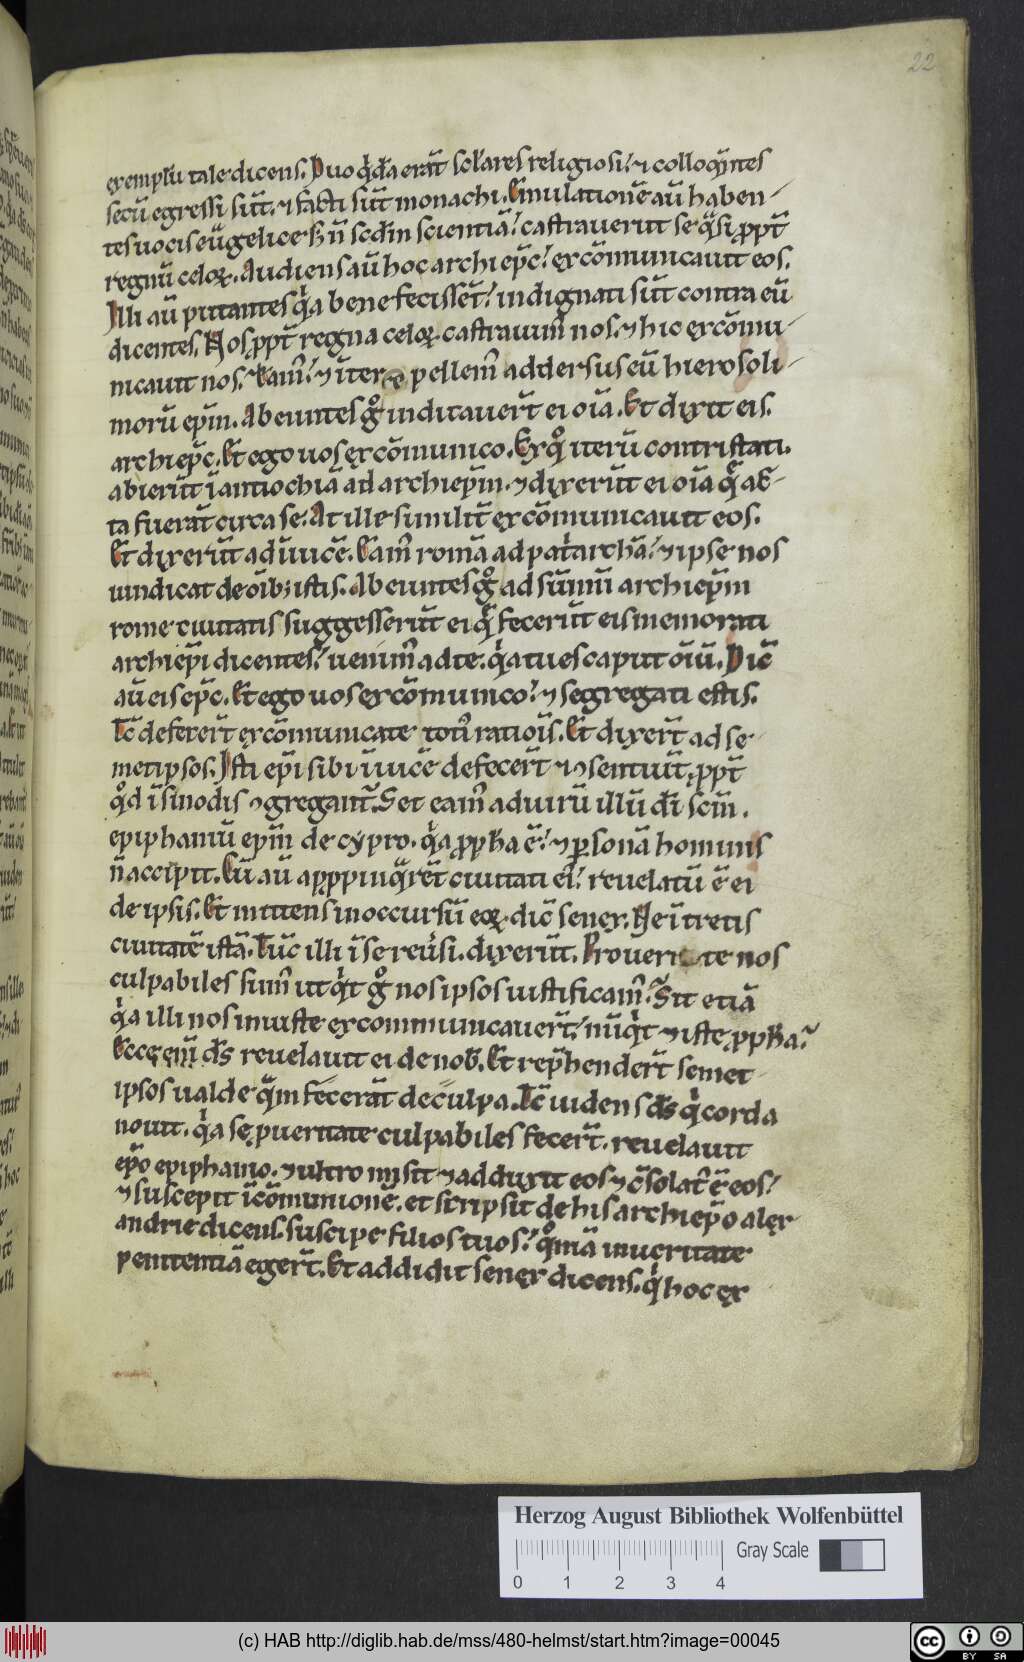 22
exemplū tale dicens. Duo q̇dā erāt sclares religiosi: ⁊ colloq̄ntes
secū egressi sūt. ⁊ facti sūt monachi. Emulationē aū haben-
tes uocis eūgelice s; n̄ scdm̄ scientiā: castrauerūt se q̄si ꝓpt̄
regnū celoꝝ. Audiens aū hoc archiep̄c: excōmunicauit eos.
Illi aū putantes q̇a bene fecissēt: indignati sūt contra eū
dicentes. Nos ꝓpt̄ regna celoꝝ castrauim᷒ nos. ⁊ hic excōmu-
nicauit nos. Eam᷒: ⁊ īter pellem᷒ addersus eū hierosoli-
morū ep̄m. Abeuntes gͦ indicauert̄ ei oīa. Et dixit eis.
archiep̄c. Et ego uos excōmunico. Ex qͦ iterū contristati.
abierūt ī antiochiā ad archiep̄m. ⁊ dixerūt ei oīa q̄ ac-
ta fuerāt circa se. At ille similit̄ excōmunicauit eos.
Et dixerūt ad īuicē. Eam᷒ romā ad pat̄archā: ⁊ ipse nos
uindicat de oīb; istis. Abeuntes gͦ ad sūmū archiep̄m
rome ciuitatis suggesserūt ei q̄ fecerūt eis memorati
archiep̄i dicentes: uenim᷒ ad te. q̇a tu es caput oīū. Dic̄
aū eis ep̄c. Et ego uos excōmunico: ⁊ segregati estis.
Tc̄ defecert̄ excōmunicate toti᷒ ratiois̄. Et dixert̄ ad se
metipsos. Isti ep̄i sibi īuicē defecert̄ ⁊ ꝯsentiūt. ꝓpt̄
qͦd ī sinodis ꝯgregant᷒. Set eam᷒ ad uirū illū dī scm̄.
epiphaniū ep̄m de cypro. q̇a ꝓpha ē: ⁊ ꝑsonā hominis
n̄ accipit. Cū aū appropinq̄rēt ciuitati ei᷒: reuelatū ē ei
de ipsis. Et mittens in occursū eoꝝ. dic̄ senex. Ne ītretis
ciuitatē istā. Tūc illi ī se reūsi. dixerūt. Pro ueritate nos
culpabiles sum᷒ ut q̇t gͦ nos ipsos iustificam᷒. Sit etiā
q̇a illi nos iniuste excommunicauert̄: nūq̇t ⁊ iste ꝓpha?
Ecce em̄ ds̄ reuelauit ei de nob̄. Et rep̄hendert̄ semet
ipsos ualde q̄m fecerāt de culpa. Tc̄ uidens ds̄ q̇ corda
nouit. q̇a se ꝑ ueritate culpabiles fecert̄. reuelauit
ep̄o epiphanio. ⁊ ultro misit ⁊ adduxit eos ⁊ ꝯsolat᷒ ē eos:
⁊ suscepit ī cōmunionē. et scripsit de his archiep̄o alex
andrie dicens. suscipe filios tuos: qͦniā in ueritate
penitentiā egert̄. Et addidit senex dicens. q̇ hoc ex
Herzog August Bibliothek Wolfenbüttel
Gray Scale
0 1 2 3 4
(c) HAB http://diglib.hab.de/mss/480-helmst/start.htm?image=00045
cc BY SA